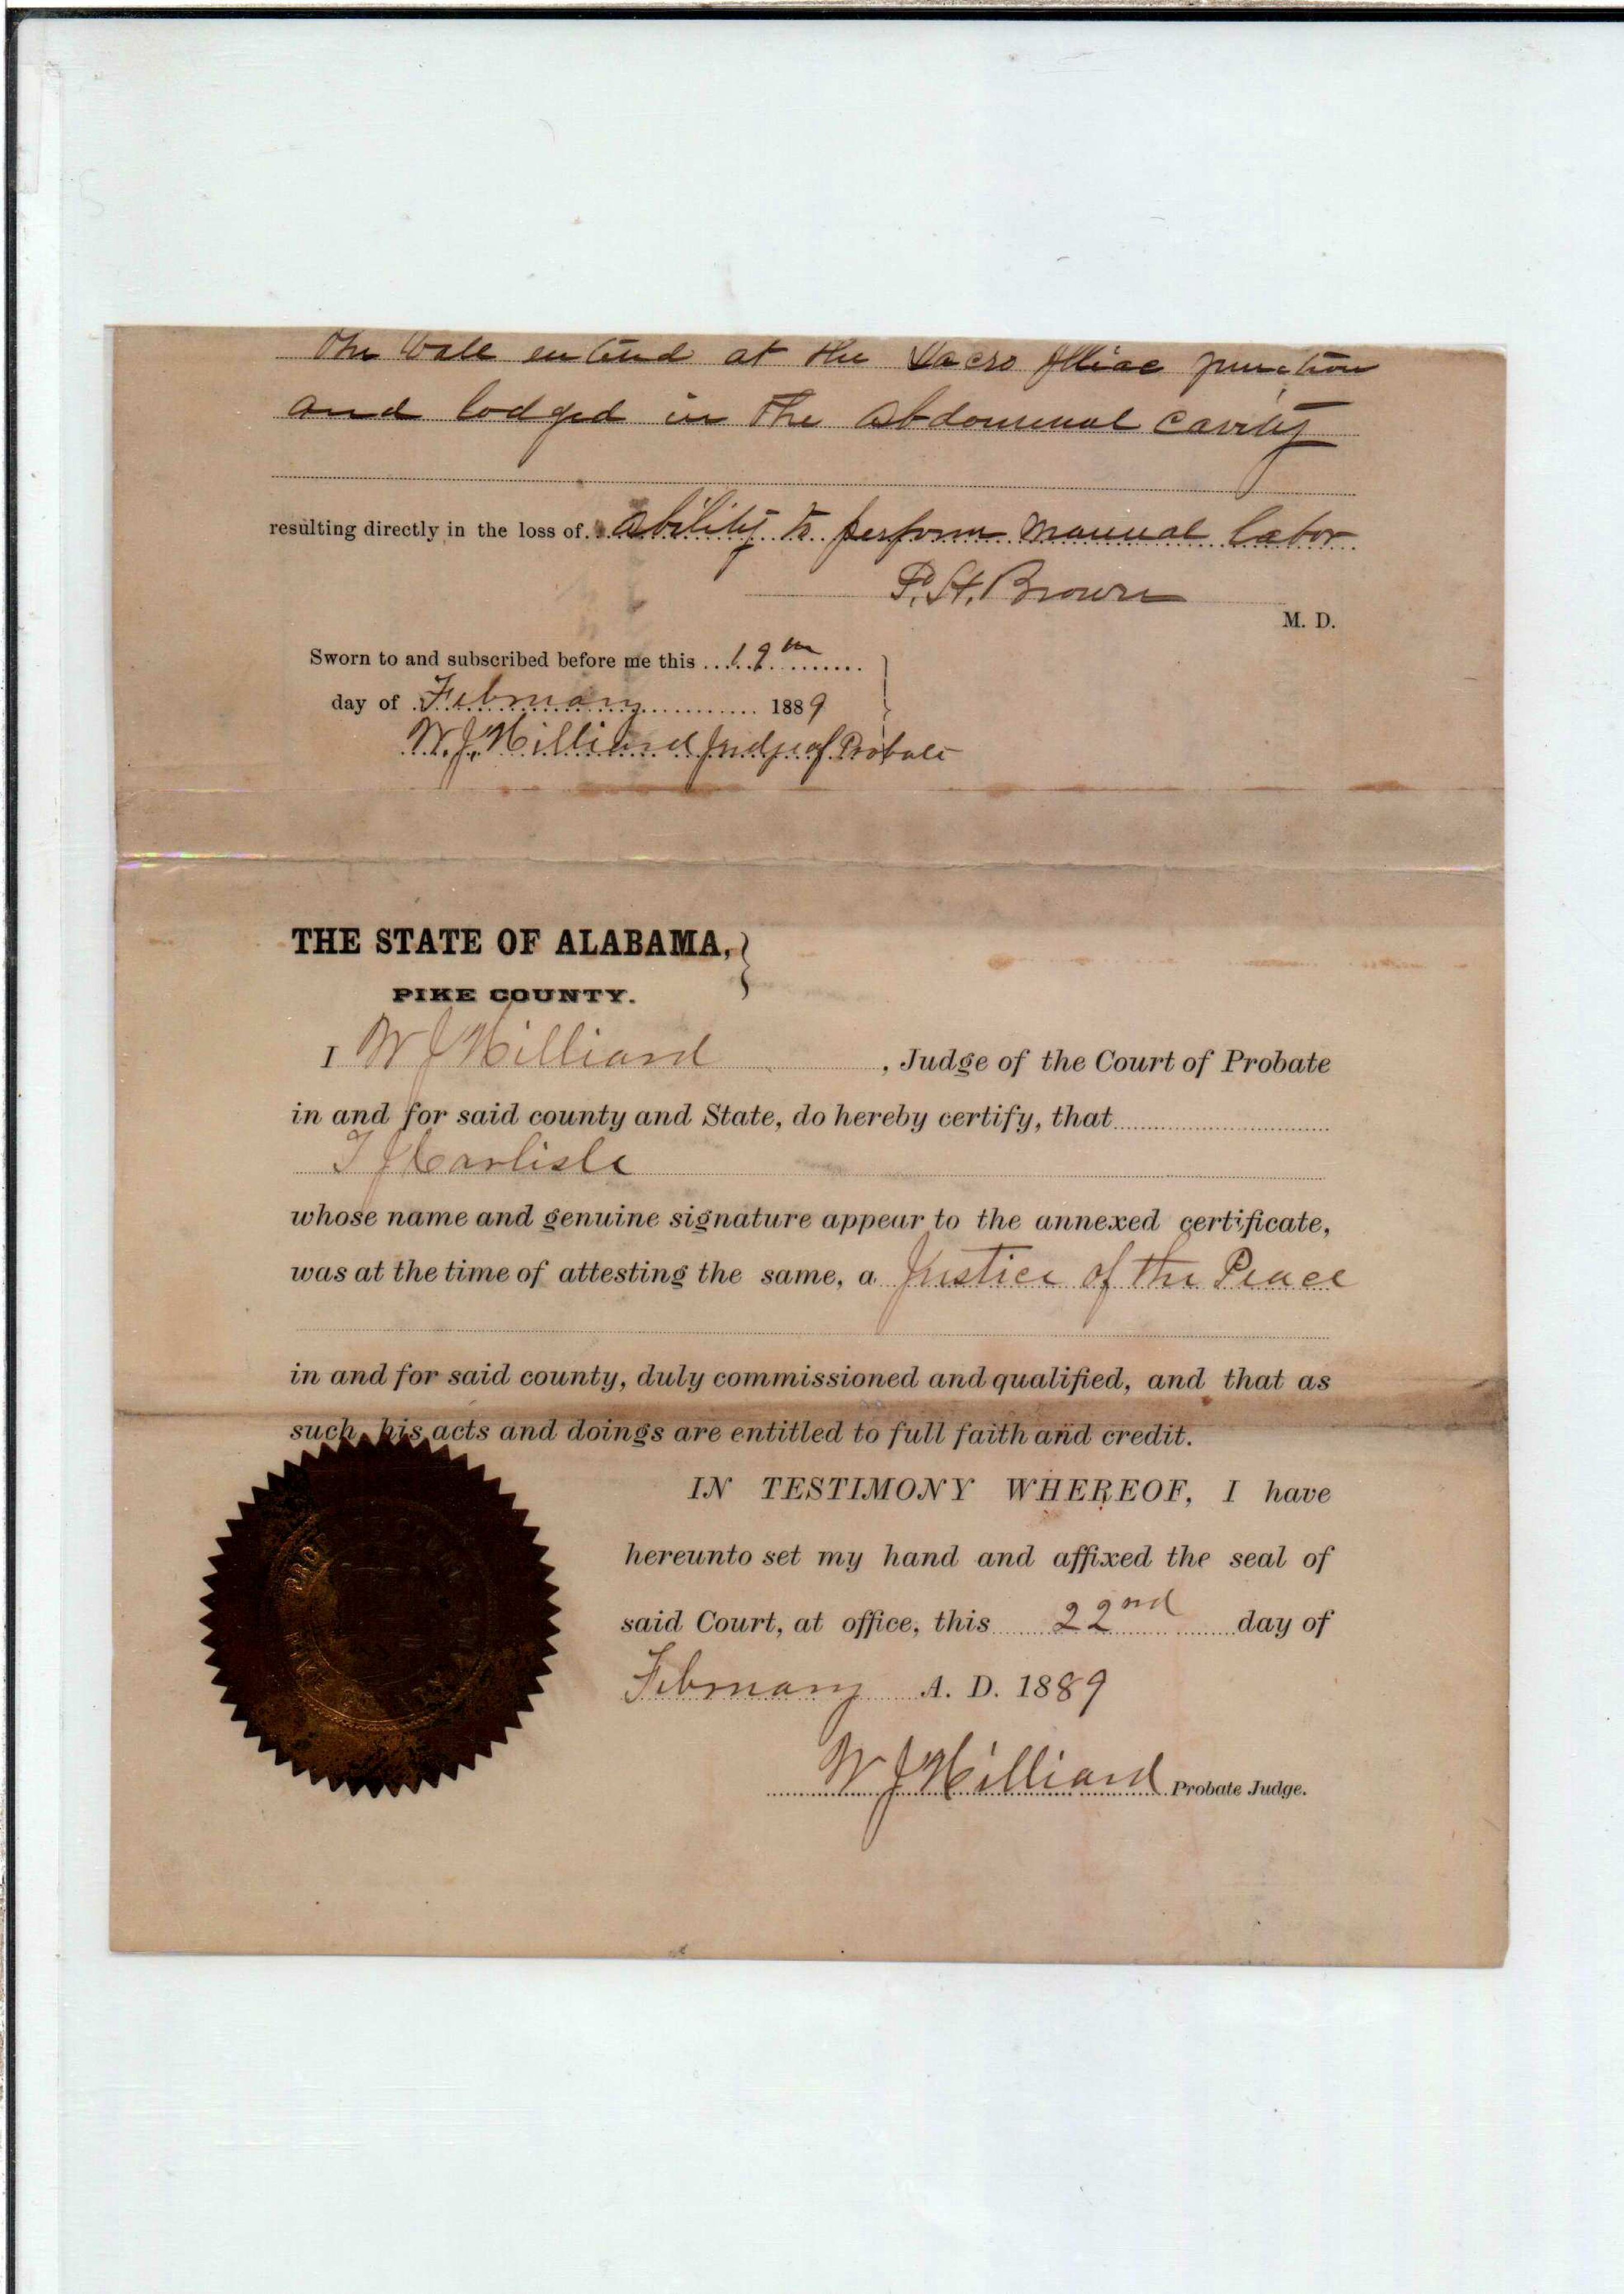 The Ball entered at the Sacro Illiac junction
and lodged in the abdominal cavity
resulting directly in the loss of ability to perform manual labor
P. H. Brown
M. D.
Sworn to and subscribed before me this 19th
day of February 1889
W. J. Hilliard Judge of Probate
THE STATE OF ALABAMA,
PIKE COUNTY.
I W J Hilliard , Judge of the Court of Probate
in and for said county and State, do hereby certify, that
T J Carlisle
whose name and genuine signature appear to the annexed certificate,
was at the time of attesting the same, a Justice of the Peace
in and for said county, duly commissioned and qualified, and that as
such, his acts and doings are entitled to full faith and credit.
IN TESTIMONY WHEREOF, I have
hereunto set my hand and affixed the seal of
said Court, at office, this 22nd day of
February A. D. 1889
W J Hilliard Probate Judge.